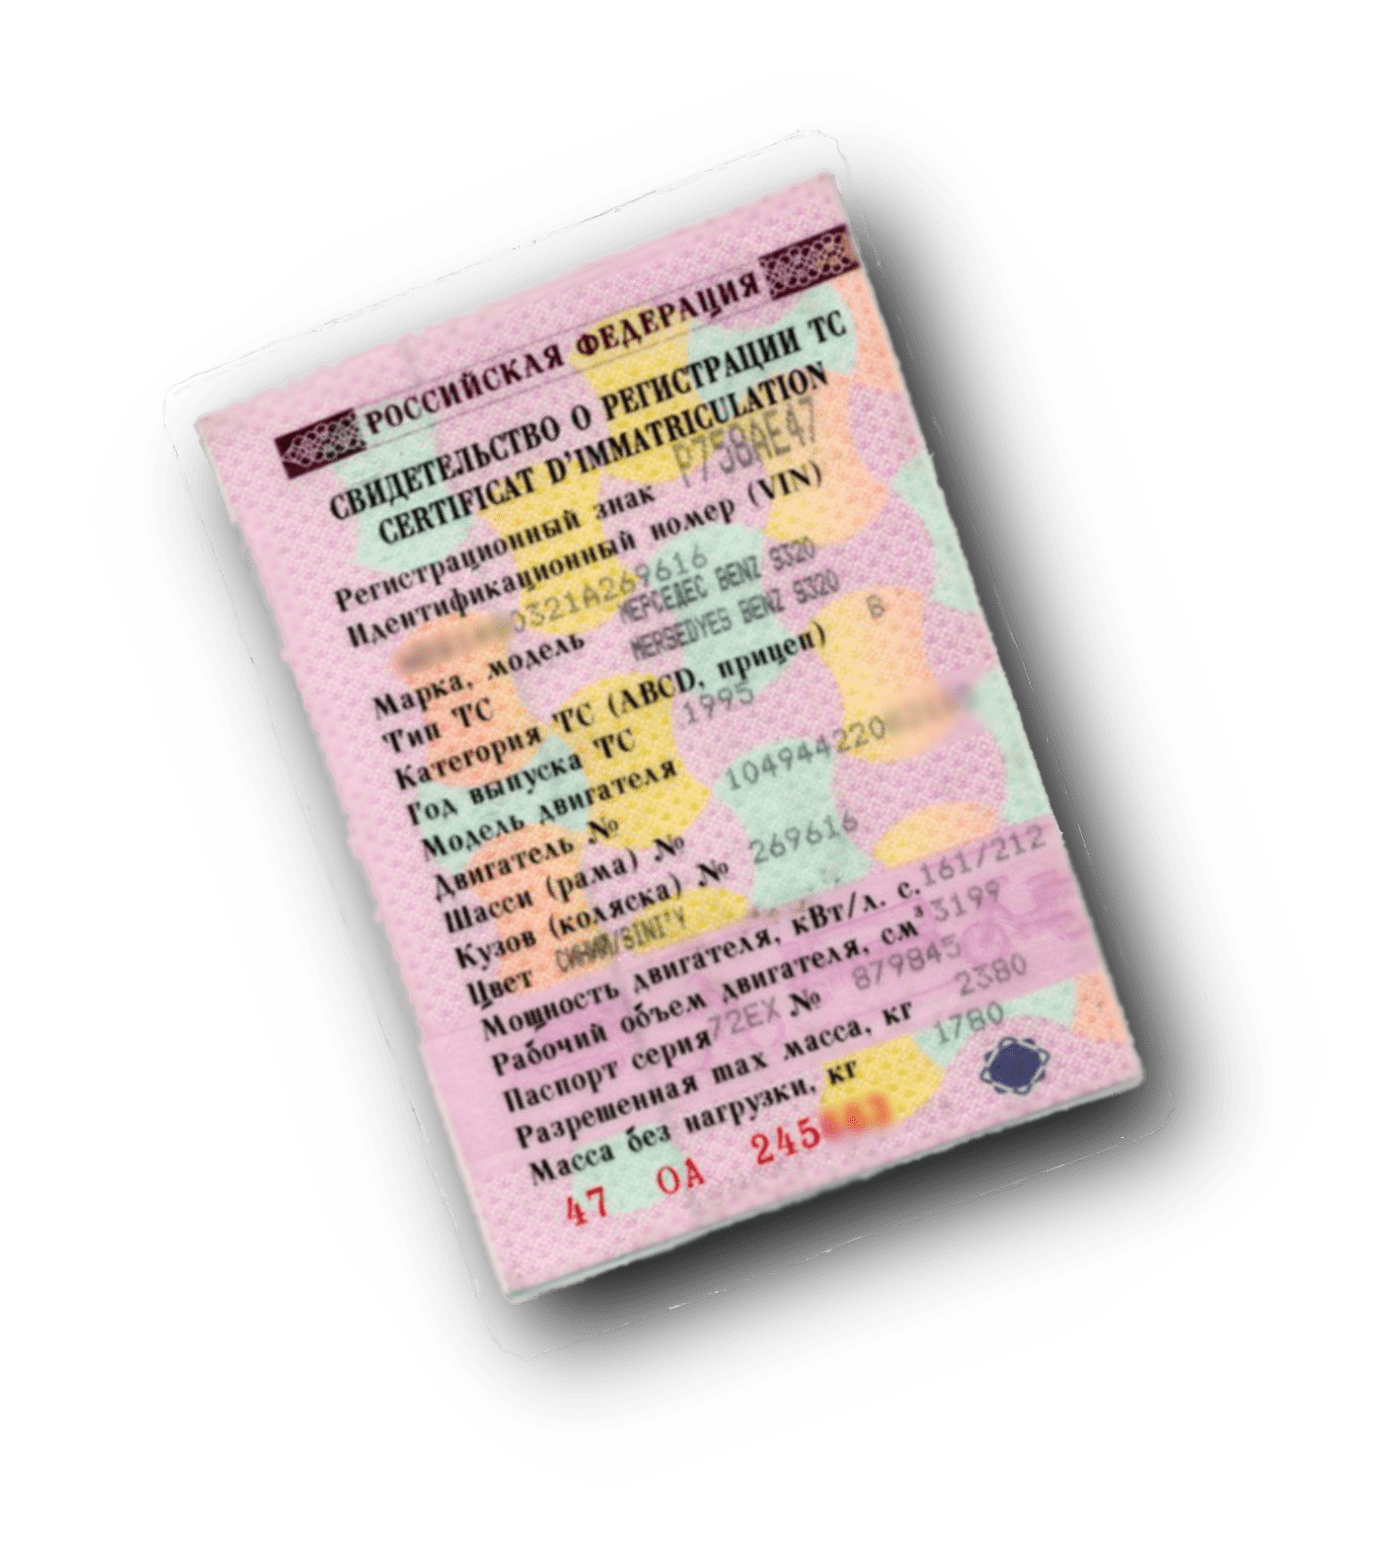 РОССИЙСКАЯ ФЕДЕРАЦИЯ
СВИДЕТЕЛЬСТВО О РЕГИСТРАЦИИ ТС
CERTIFICAT D'IMMATRICULATION
Регистрационный знак Р758АЕ47
Идентификационный номер (VIN)
0321A269616
Марка, модель МЕРСЕДЕС BENZ S320
MERSEDYES BENZ S320
Тип ТС
Категория ТС (ABCD, прицеп) B
Год выпуска ТС 1995
Модель двигателя
Двигатель № 104944220
Шасси (рама) №
Кузов (коляска) № 269616
Цвет СИНИЙ/SINI'Y
Мощность двигателя, кВт/л. с. 161/212
Рабочий объем двигателя, см³ 3199
Паспорт серия 72ЕХ № 879845
Разрешенная max масса, кг 2380
Масса без нагрузки, кг 1780
47 ОА 245